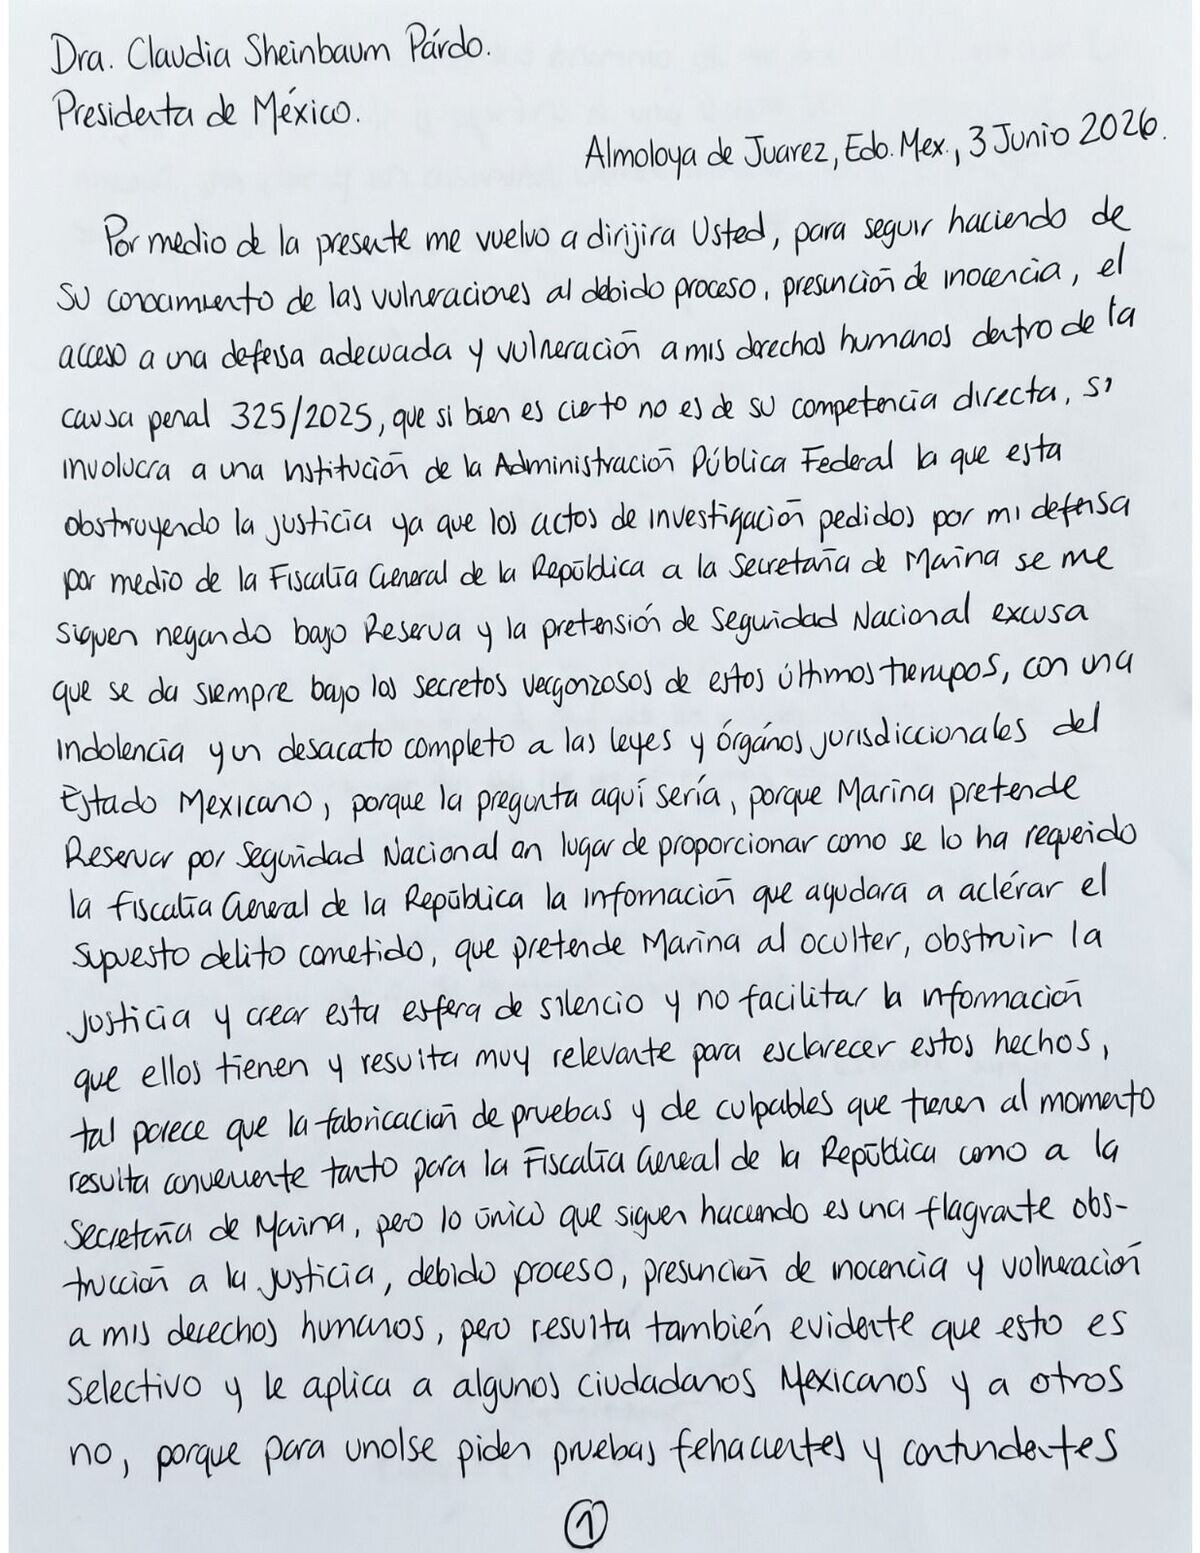 Dra. Claudia Sheinbaum Párdo.
Presidenta de México.
Almoloya de Juarez, Edo. Mex., 3 Junio 2026.
Por medio de la presente me vuelvo a dirijira Usted, para seguir haciendo de
su conocimiento de las vulneraciones al debido proceso, presunción de inocencia, el
acceso a una defensa adecuada y vulneración a mis derechos humanos dentro de la
causa penal 325/2025, que si bien es cierto no es de su competencia directa, si
involucra a una institución de la Administración Pública Federal la que esta
obstruyendo la justicia ya que los actos de investigación pedidos por mi defensa
por medio de la Fiscalía General de la República a la Secretaría de Marina se me
siguen negando bajo Reserva y la pretensión de Seguridad Nacional excusa
que se da siempre bajo los secretos vergonzosos de estos últimos tiempos, con una
indolencia y un desacato completo a las leyes y órgános jurisdiccionales del
Estado Mexicano, porque la pregunta aquí sería, porque Marina pretende
Reservar por Seguridad Nacional en lugar de proporcionar como se lo ha requerido
la Fiscalía General de la República la información que ayudara a aclérar el
supuesto delito cometido, que pretende Marina al oculter, obstruir la
justicia y crear esta esfera de silencio y no facilitar la información
que ellos tienen y resulta muy relevante para esclarecer estos hechos,
tal parece que la fabricación de pruebas y de culpables que tienen al momento
resulta conveniente tanto para la Fiscalía General de la República como a la
Secretaría de Marina, pero lo único que siguen haciendo es una flagrante obs-
trucción a la justicia, debido proceso, presunción de inocencia y vulneración
a mis derechos humanos, pero resulta también evidente que esto es
selectivo y le aplica a algunos ciudadanos Mexicanos y a otros
no, porque para unos se piden pruebas fehacientes y contundentes
1